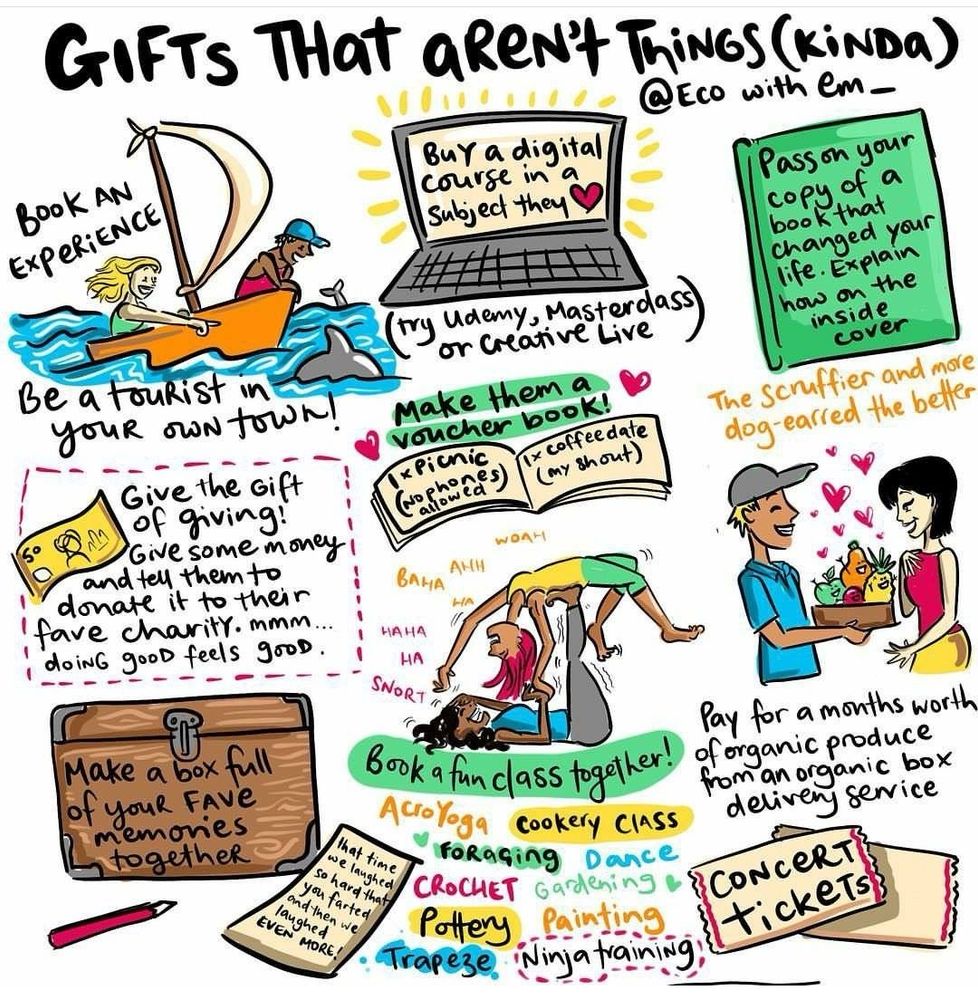 GIFTS THAT aREN't THiNGS (KiNDa)
@Eco with em_
BOOK AN
EXPERiENCE
Be a touRist in
youR own town!
Buy a digital
course in a
subject they
(try Udemy, Masterclass
or Creative Live)
Pass on your
copy of a
book that
changed your
life. Explain
how on the
inside
cover
The Scruffier and more
dog-earred the better
Make them a
voucher book!
1x Picnic
(no phones)
allowed
1x coffee date
(my shout)
50
Give the Gift
of giving!
Give some money
and tell them to
donate it to their
fave charity. mmm...
doiNG gooD feels gooD.
WOAH
AHH
BAHA
HA
HAHA
HA
SNORT
Book a fun class together!
AcroYoga
Cookery Class
Foraging
Dance
CROCHET
Gardening
Pottery
Painting
Trapeze
Ninja training
Pay for a months worth
of organic produce
from an organic box
delivery service
Make a box full
of youR FAVE
memories
together
that time
we laughed
so hard that
you farted
and then we
laughed
EVEN MORE!
CONCERT
tickets